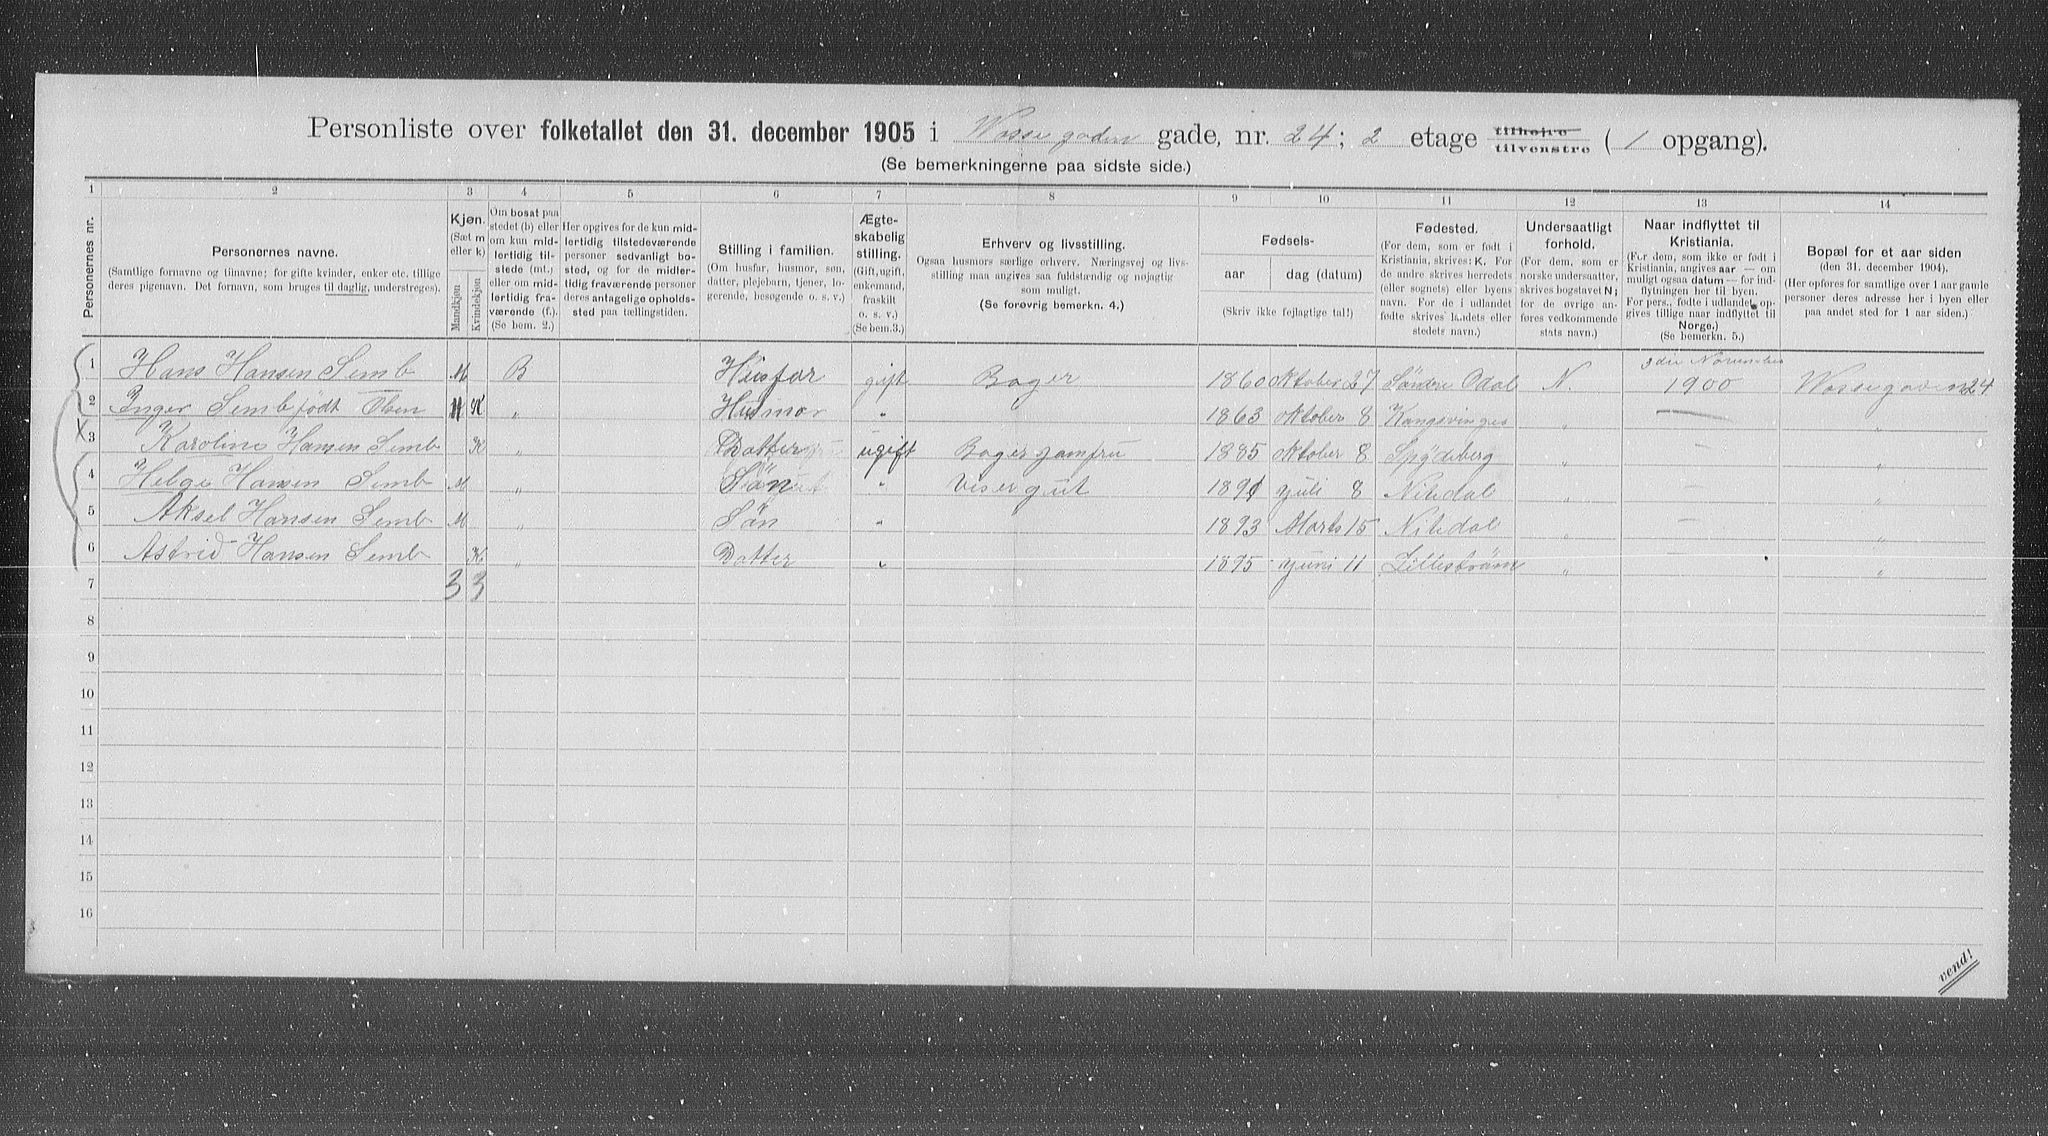 Personliste over folketallet den 31. december 1905 i Wossegaden gade, nr. 24; 2 etage tilhøjre tilvenstre (1 opgang).
(Se bemerkningerne paa sidste side.)
1 2 3 4 5 6 7 8 9 10 11 12 13 14
Personernes nr.
Personernes navne.
(Samtlige fornavne og tilnavne; for gifte kvinder, enker etc. tillige
deres pigenavn. Det fornavn, som bruges til daglig, understreges).
Kjøn.
(Sæt m
eller k)
Mandkjøn
Kvindekjøn
Om bosat paa
stedet (b) eller
om kun mid-
lertidig til-
stede (mt.)
eller om mid-
lertidig fra-
værende (f.).
(Se bem. 2.)
Her opgives for de kun mid-
lertidig tilstedeværende
personer sedvanligt bo-
sted, og for de midler-
tidig fraværende personer
deres antagelige opholds-
sted paa tællingstiden.
Stilling i familien.
(Om husfar, husmor, søn,
datter, plejebarn, tjener, lo-
gerende, besøgende o. s. v.)
Ægte-
skabelig
stilling.
(Gift, ugift,
enkemand,
fraskilt
o. s. v.)
(Se bem. 3.)
Erhverv og livsstilling.
Ogsaa husmors særlige erhverv. Næringsvej og livs-
stilling maa angives saa fuldstændig og nøjagtig
som muligt.
(Se forøvrig bemerkn. 4.)
Fødsels-
aar
dag (datum)
(Skriv ikke fejlagtige tal!)
Fødested.
(For dem, som er født i
Kristiania, skrives: K. For
de andre skrives herredets
(eller sognets) eller byens
navn. For de i udlandet
fødte skrives landets eller
stedets navn.)
Undersaatligt
forhold.
(For dem, som er
norske undersaatter,
skrives bogstavet N;
for de øvrige an-
føres vedkommende
stats navn.)
Naar indflyttet til
Kristiania.
(For dem, som ikke er født i
Kristiania, angives aar — om
muligt ogsaa datum — for ind-
flytningen her til byen.
For pers., fødte i udlandet, op-
gives tillige naar indflyttet til
Norge.)
(Se bemerkn. 5.)
Bopæl for et aar siden
(den 31. december 1904).
(Her opføres for samtlige over 1 aar gamle
personer deres adresse her i byen eller
paa andet sted for 1 aar siden.)
1 Hans Hansen Semb M B Husfar gift Bager 1860 oktober 27 Söndre Odal N. 3die November 1900 Wossegaden 24
2 Inger Semb født Olsen K „ Husmor „ 1863 oktober 8 Kongsvinger „ — „
X 3 Karoline Hansen Semb K „ Datter ugift Bagerjomfru 1885 oktober 8 Spydeberg „ — „
4 Helge Hansen Semb M „ Sön „ Visergut 1891 juli 8 Nitedal „ — „
5 Aksel Hansen Semb M „ Sön „ 1893 Marts 15 Nitedal „ — „
6 Astrid Hansen Semb K „ Datter „ 1895 juni 11 Lilleström „ — „
7 3 3
8
9
10
11
12
13
14
15
16
vend!